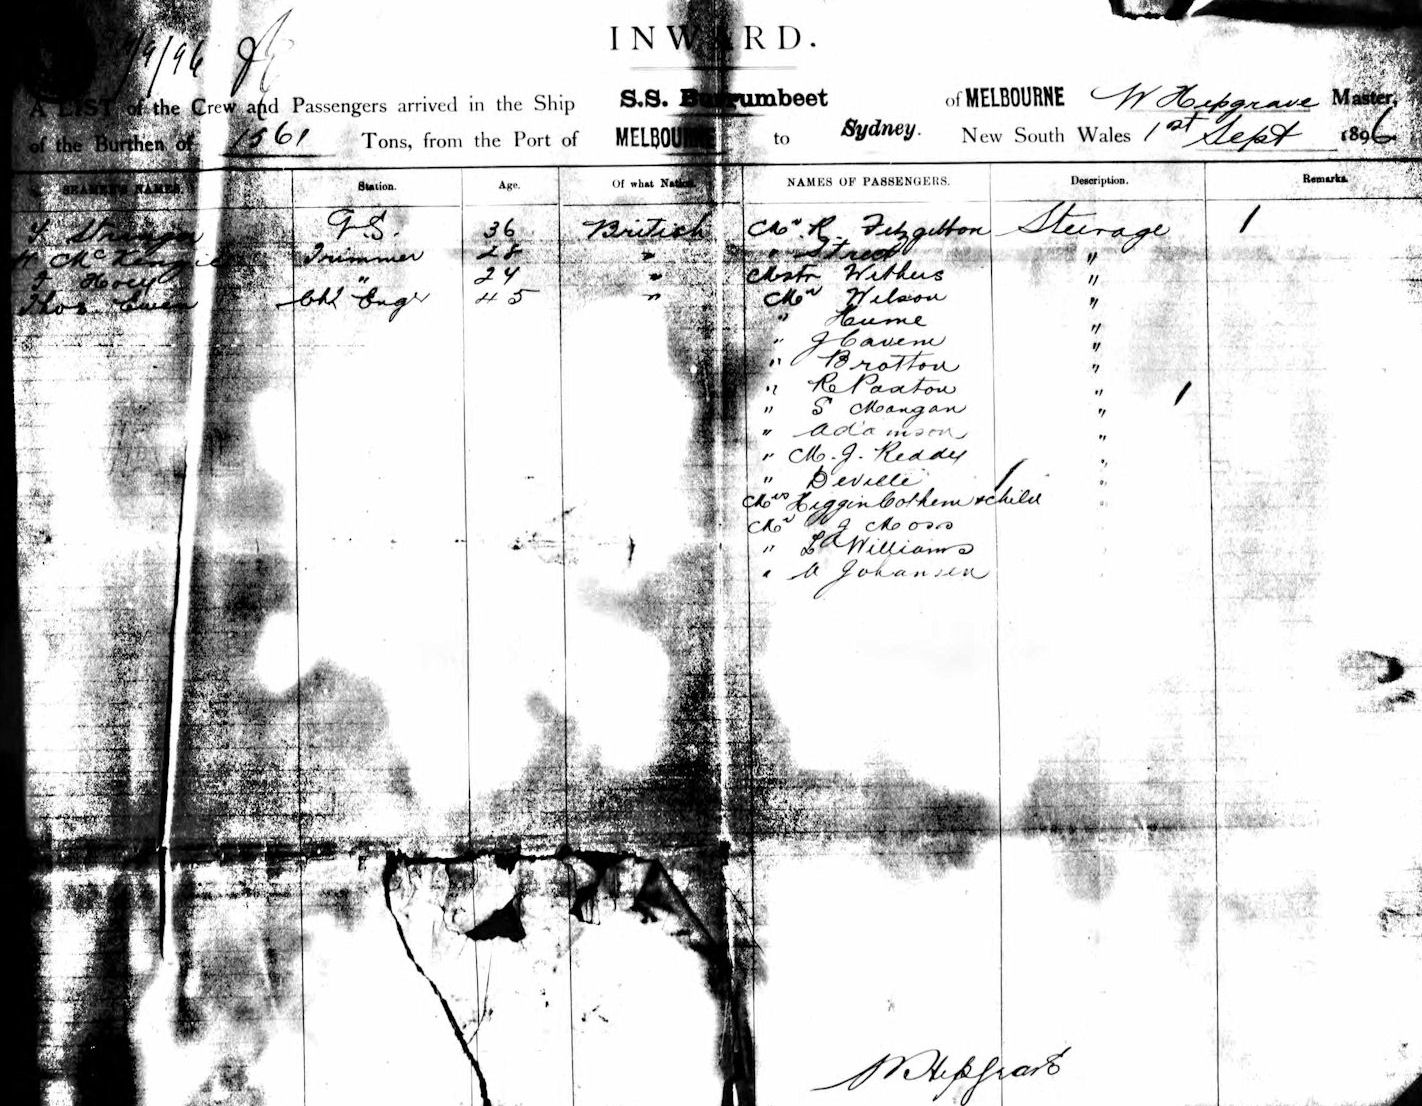 1/9/96
INWARD.
A LIST of the Crew and Passengers arrived in the Ship S.S. Burrumbeet of MELBOURNE W Hepgrave Master,
of the Burthen of 1561 Tons, from the Port of MELBOURNE to Sydney. New South Wales 1st Sept 1896
SEAMEN'S NAMES. Station. Age. Of what Nation. NAMES OF PASSENGERS. Description. Remarks.
Stranger G.S. 36 British Mr. R. Fitzgibbon Steerage 1
McKenzie Trimmer 28 " " "
Hoey " 24 " Mstr Withers "
Thos. Ewen Chf Engr 45 " Mr Wilson "
" Hume "
" J Cavem "
" Bratton "
" R Paxton "
" S Mangan "
" Adamson "
" M. J. Reddy "
" Deville "
Mrs Higginbothem & child "
Mr J Moss
" L A Williams
" A Johansen
W Hepgrave